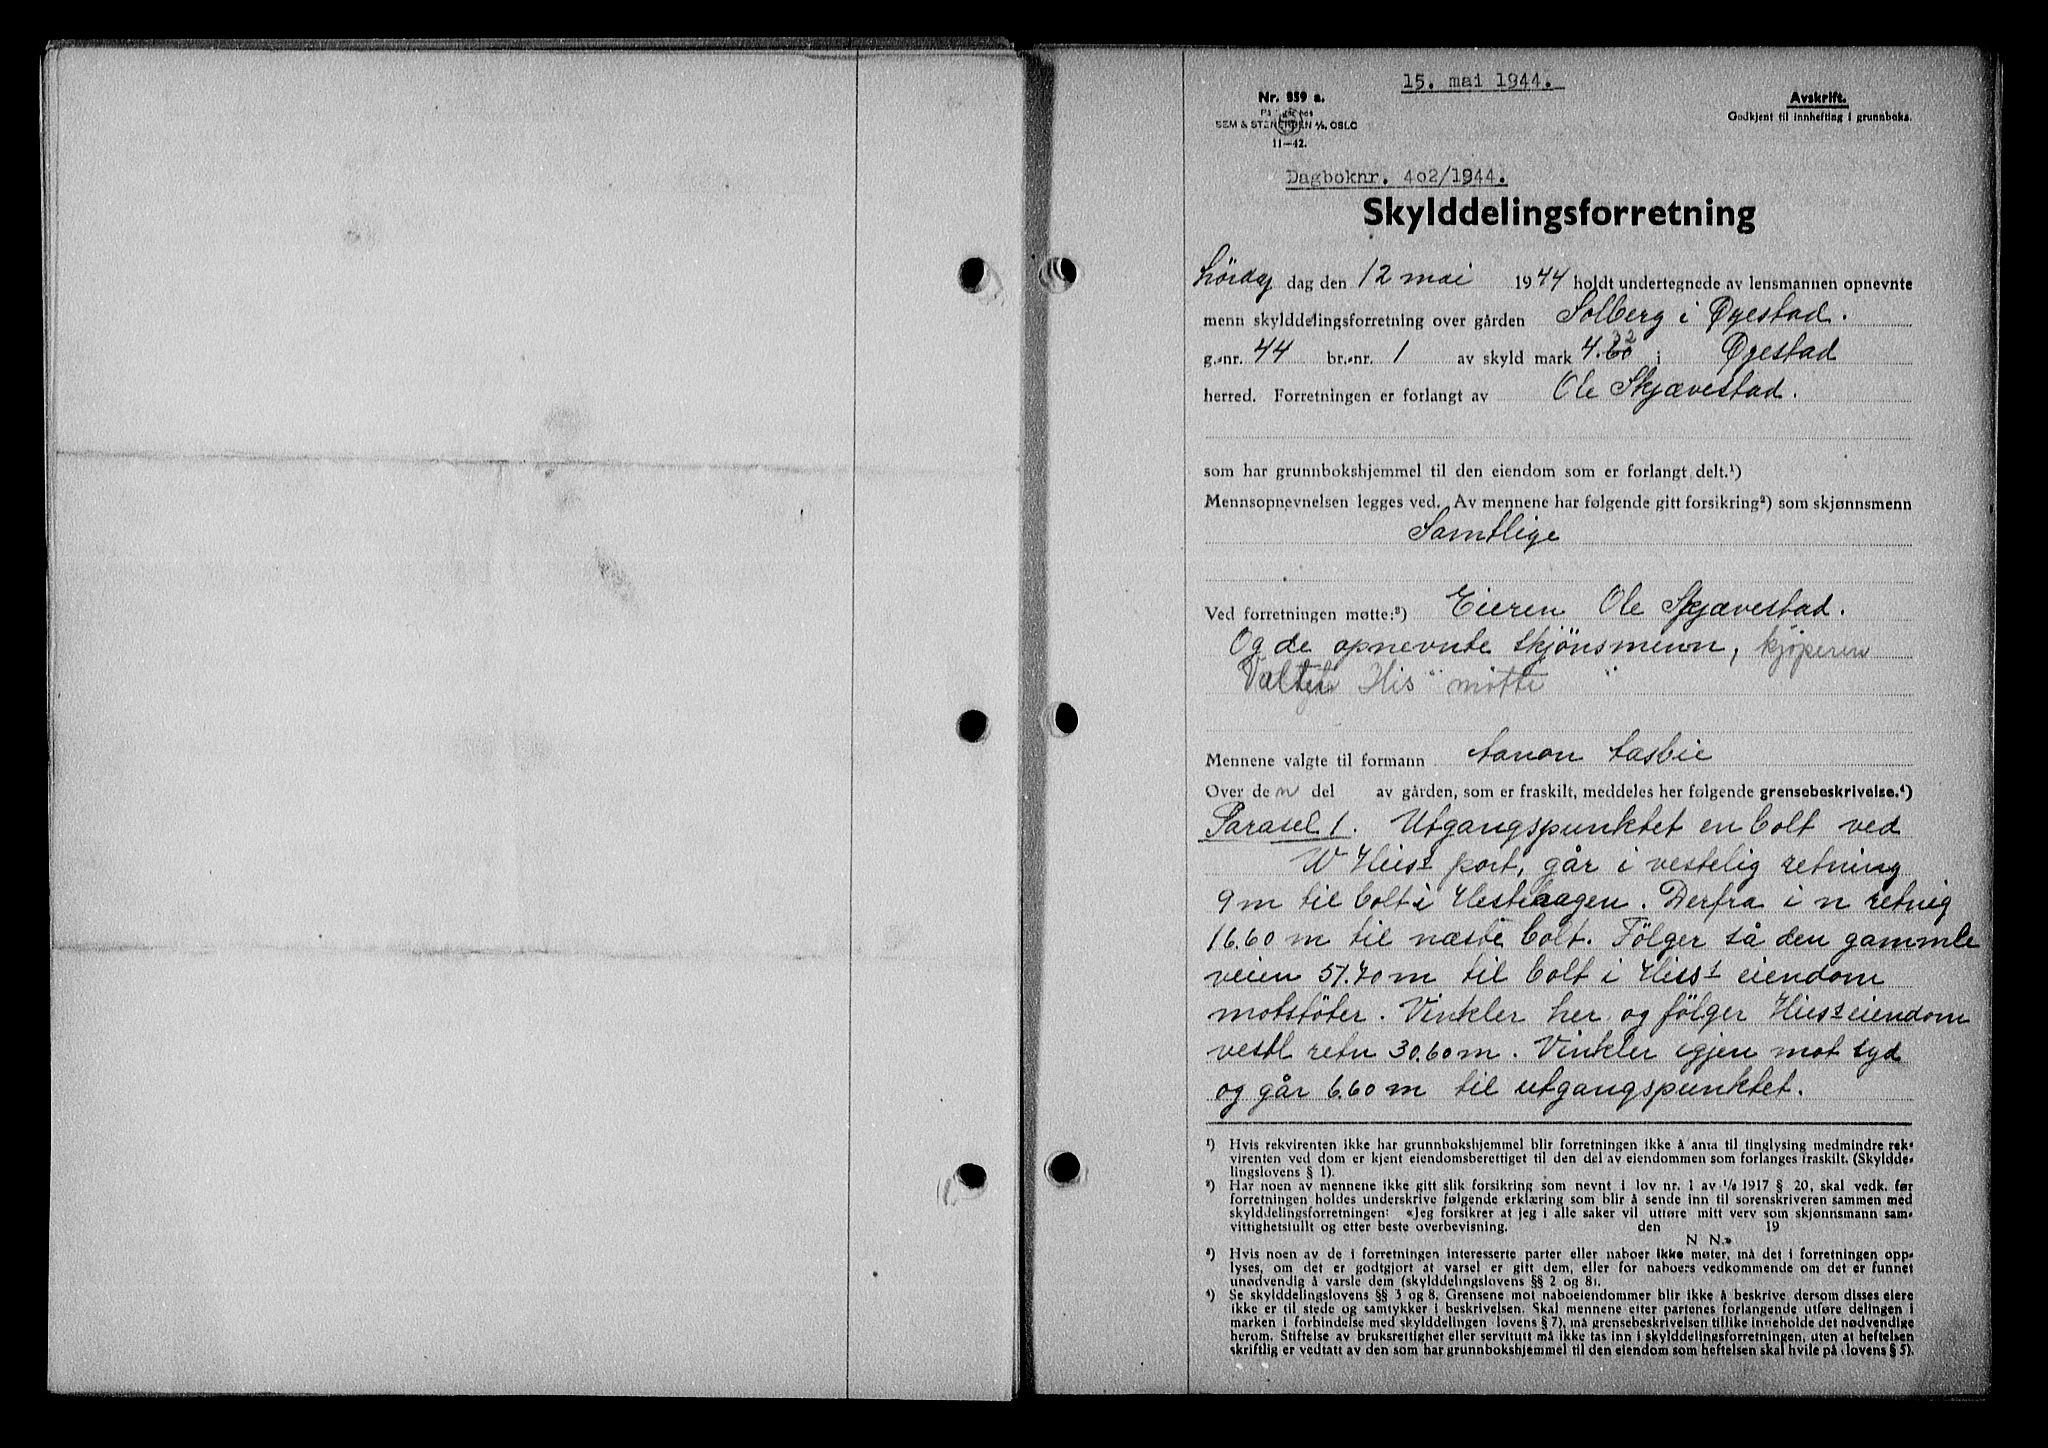 15. mai 1944.
Nr. 859 a.
SEM & STENERSEN A/S, OSLO
11—42.
Avskrift.
Godkjent til innhefting i grunnboka.
Dagboknr. 402/1944.
Skylddelingsforretning
Lördag dag den 12 mai 1944 holdt undertegnede av lensmannen opnevnte
menn skylddelingsforretning over gården Solberg i Øyestad.
g.-nr. 44 br.-nr. 1 av skyld mark 4.32 i Øyestad
herred. Forretningen er forlangt av Ole Skjævestad.
som har grunnbokshjemmel til den eiendom som er forlangt delt.¹)
Mennsopnevnelsen legges ved. Av mennene har følgende gitt forsikring²) som skjønnsmenn
Samtlige
Ved forretningen møtte:³) Eieren Ole Skjævestad.
Og de opnevnte skjönsmenn, kjøperen
His møtte
Mennene valgte til formann
Over de n del av gården, som er fraskilt, meddeles her følgende grensebeskrivelse.⁴)
Parasel 1. Utgangspunktet en bolt ved
W Hiis port, går i vestelig retning
9 m til bolt i Hestehagen. Derfra i n retnig
16.60 m til næste bolt. Fölger så den gammle
veien 51.70 m til bolt i Hiis eiendom
motstöter. Vinkler her og fölger Hiis eiendom
vestl retn 30.60 m. Vinkler igjen mot syd
og går 6.60 m til utgangspunktet.
¹) Hvis rekvirenten ikke har grunnbokshjemmel blir forretningen ikke å anta til tinglysing medmindre rek-
virenten ved dom er kjent eiendomsberettiget til den del av eiendommen som forlanges fraskilt. (Skyldde-
lingslovens § 1).
²) Har noen av mennene ikke gitt slik forsikring som nevnt i lov nr. 1 av 1/6 1917 § 20, skal vedk. før
forretningen holdes underskrive følgende erklæring som blir å sende inn til sorenskriveren sammen med
skylddelingsforretningen: «Jeg forsikrer at jeg i alle saker vil utføre mitt verv som skjønnsmann sam-
vittighetsfullt og etter beste overbevisning. den 19
N N.»
³) Hvis noen av de i forretningen interesserte parter eller naboer ikke møter, må det i forretningen opp-
lyses, om det er godtgjort at varsel er gitt dem, eller for naboers vedkommende om det er funnet
unødvendig å varsle dem (skylddelingslovens §§ 2 og 8).
⁴) Se skylddelingslovens §§ 3 og 8. Grensene mot naboeiendommer blir ikke å beskrive dersom disses eiere
ikke er til stede og samtykker i beskrivelsen. Skal mennene etter partenes forlangende utføre delingen i
marken i forbindelse med skylddelingen lovens § 7), må grensebeskrivelsen tillike inneholde det nødvendige
herom. Stiftelse av bruksrettighet eller servitutt må ikke tas inn i skylddelingsforretningen, uten at heftelsen
skriftlig er vedtatt av den som har grunnbokshjemmel til den eiendom som heftelsen skal hvile på lovens § 5).